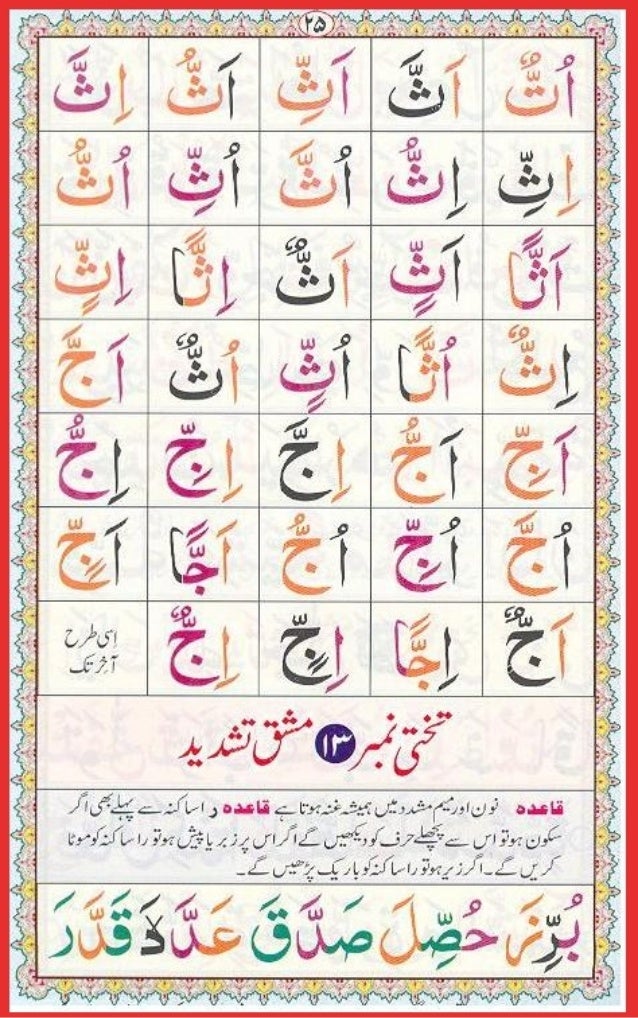 ۲۵
اُتٌّ اَثَّ اَثِّ اَثُّ اِثَّ
اِثِّ اِثُّ اُثَّ اُثِّ اُثُّ
اَثًّا اَثٍّ اَثٌّ اِثًّا اِثٍّ
اِثٌّ اُثًّا اُثٍّ اُثٌّ اَجَّ
اَجِّ اَجُّ اِجَّ اِجِّ اِجُّ
اُجَّ اُجِّ اُجُّ اَجًّا اَجٍّ
اَجٌّ اِجًّا اِجٍّ اِجٌّ اِسی طرح
آخر تک
تختی نمبر ۱۳ مشق تشدید
قاعدہ نون اور میم مشدد میں ہمیشہ غنہ ہوتا ہے قاعدہ ر اسا کنہ سے پہلے بھی اگر
سکون ہوتو اس سے پچھلے حرف کو دیکھیں گے اگر اس پر زبر یا پیش ہوتو راسا کنہ کو موٹا
کریں گے۔ اگر زیر ہوتو راسا کنہ کو باریک پڑھیں گے۔
بُرِّزَ حُصِّلَ صَدَّقَ قَدَّرَ